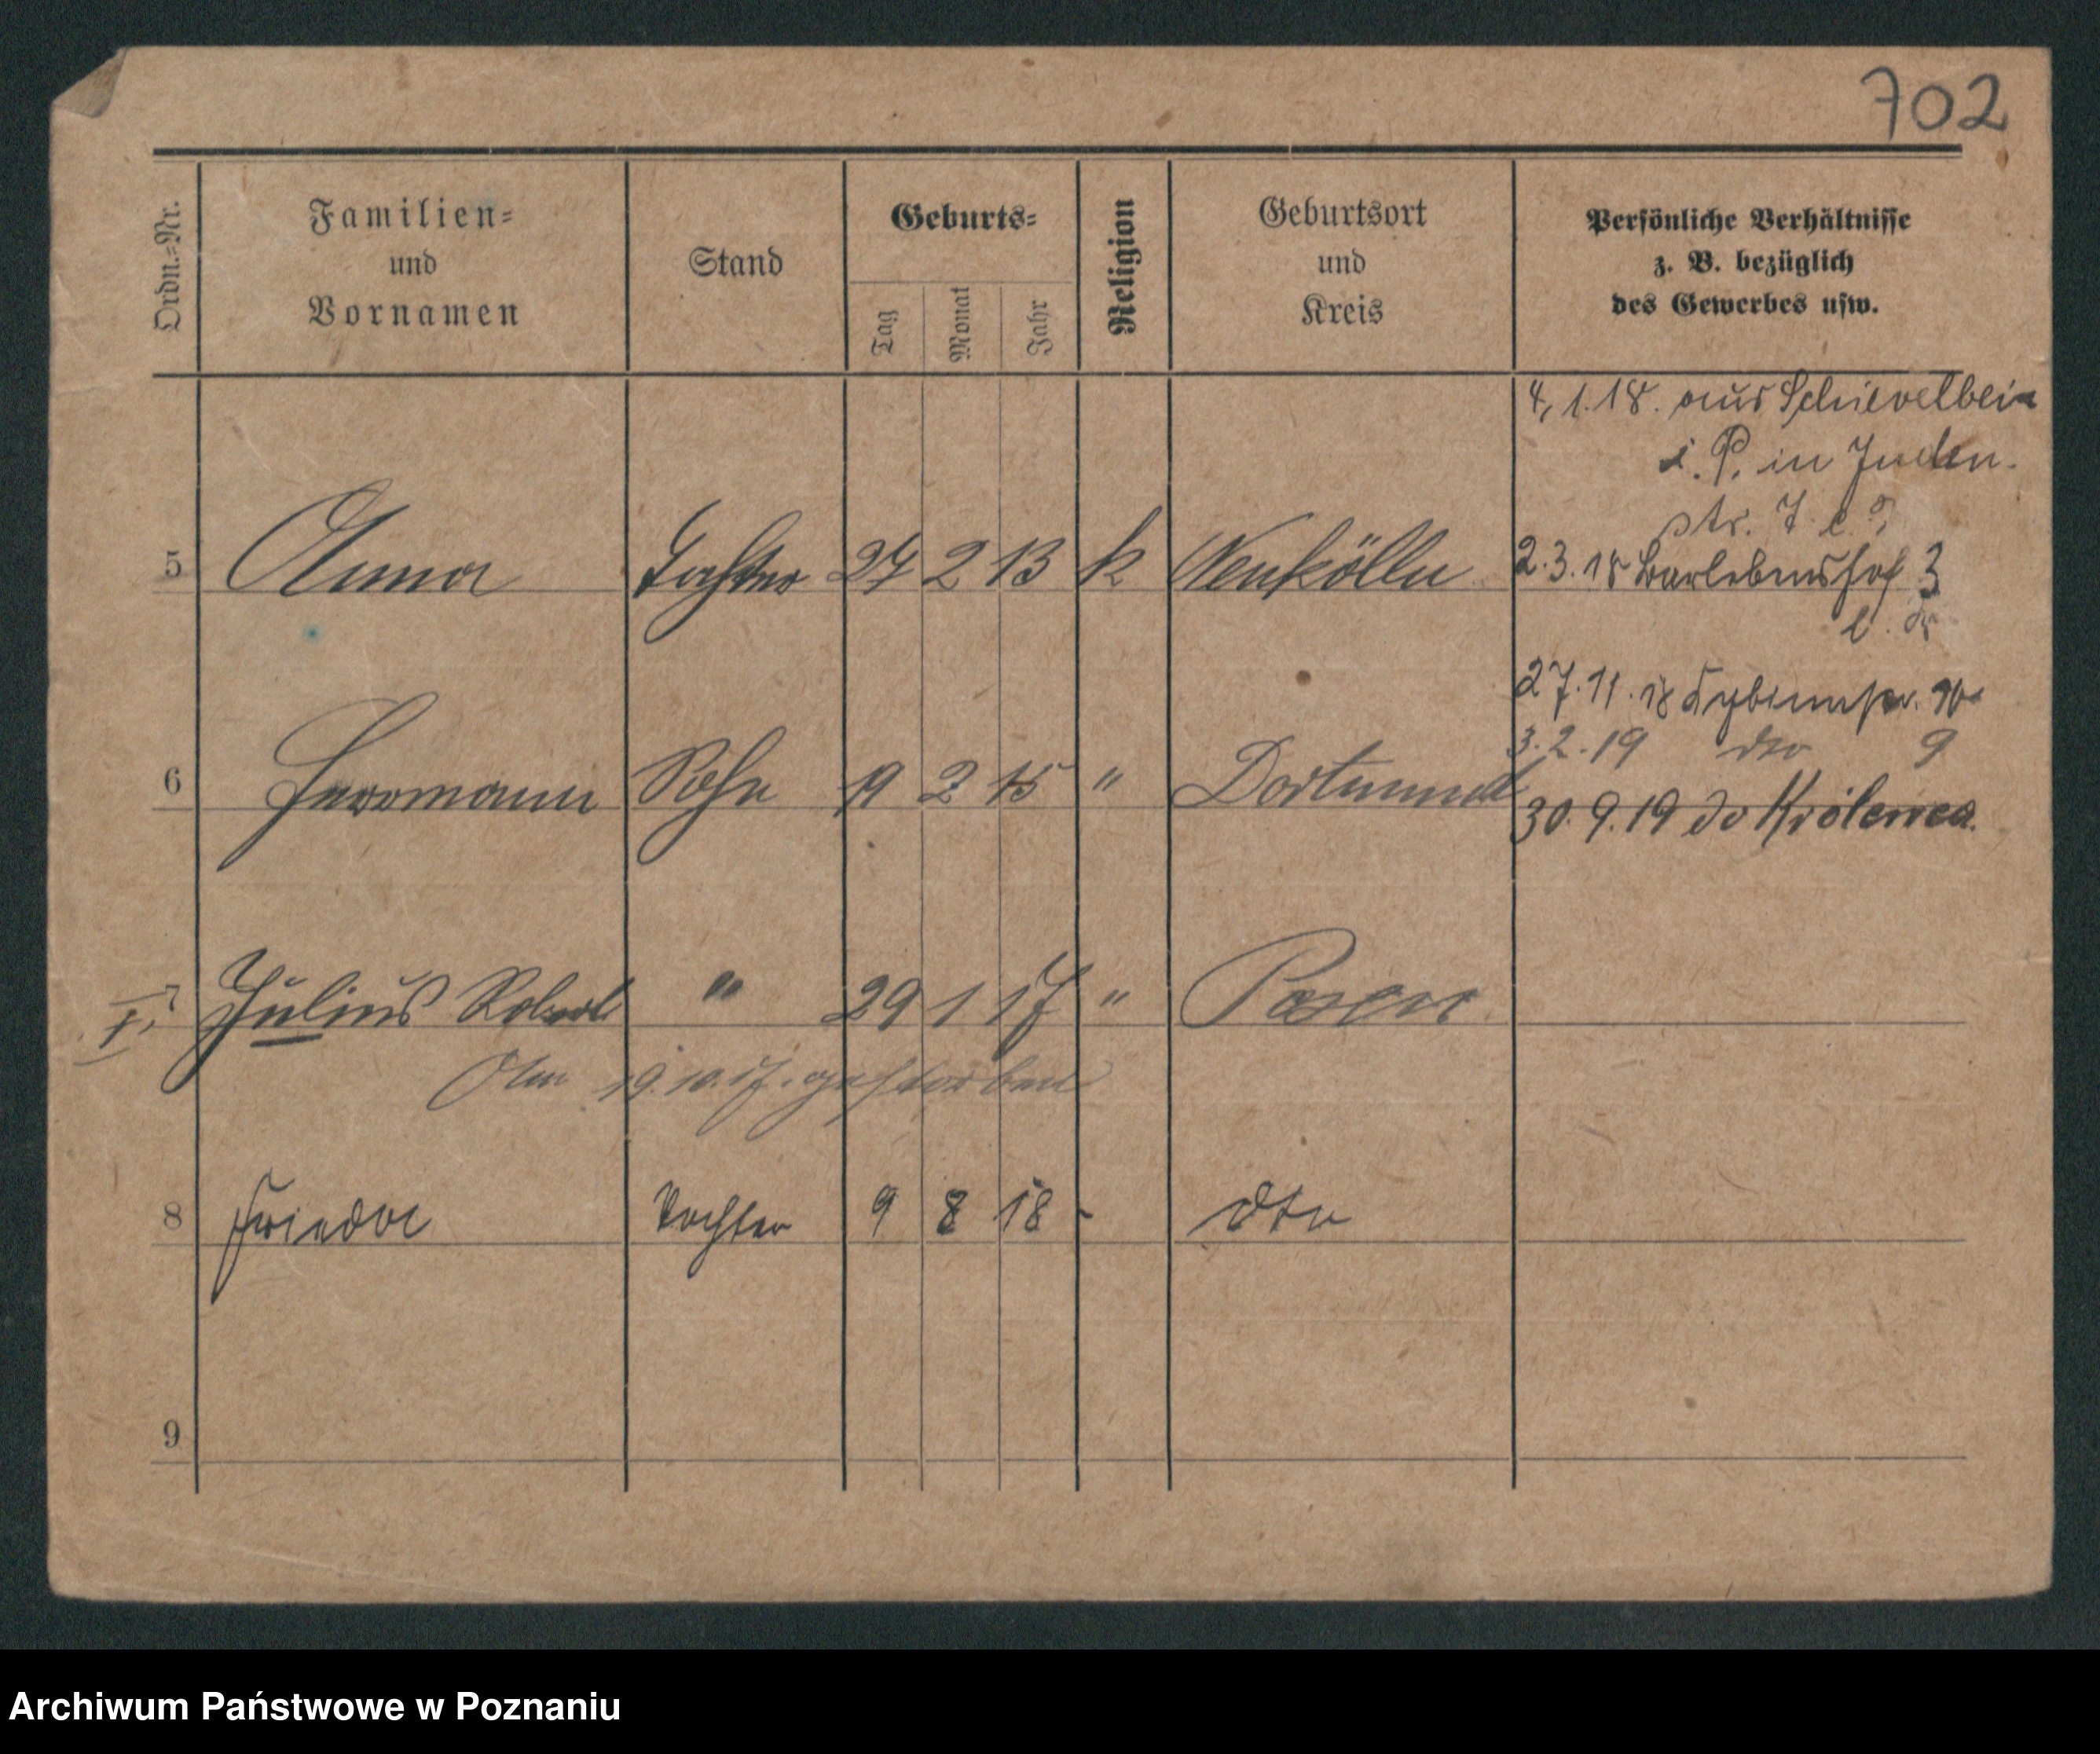 702
Ordn.-Nr.
Familien-
und
Vornamen
Stand
Geburts-
Tag
Monat
Jahr
Religion
Geburtsort
und
Kreis
Persönliche Verhältnisse
z. B. bezüglich
des Gewerbes usw.
4. 1. 18. aus Schievelbein
i. P. in Juden-
str. 7
5 Anna Tochter 24 2 13 k Neukölln
2.3.18 Barlebenshof 3
27.11.18
3.2.19 dto 9
6 Herrmann Sohn 19 2 15 " Dortmund
30.9.19 do Królewca.
I. 7 Julius Robert " 29 1 17 " Posen
Am 19.10.17. gestorben
8 Frieda Tochter 9 8 18 - dto
9
Archiwum Państwowe w Poznaniu